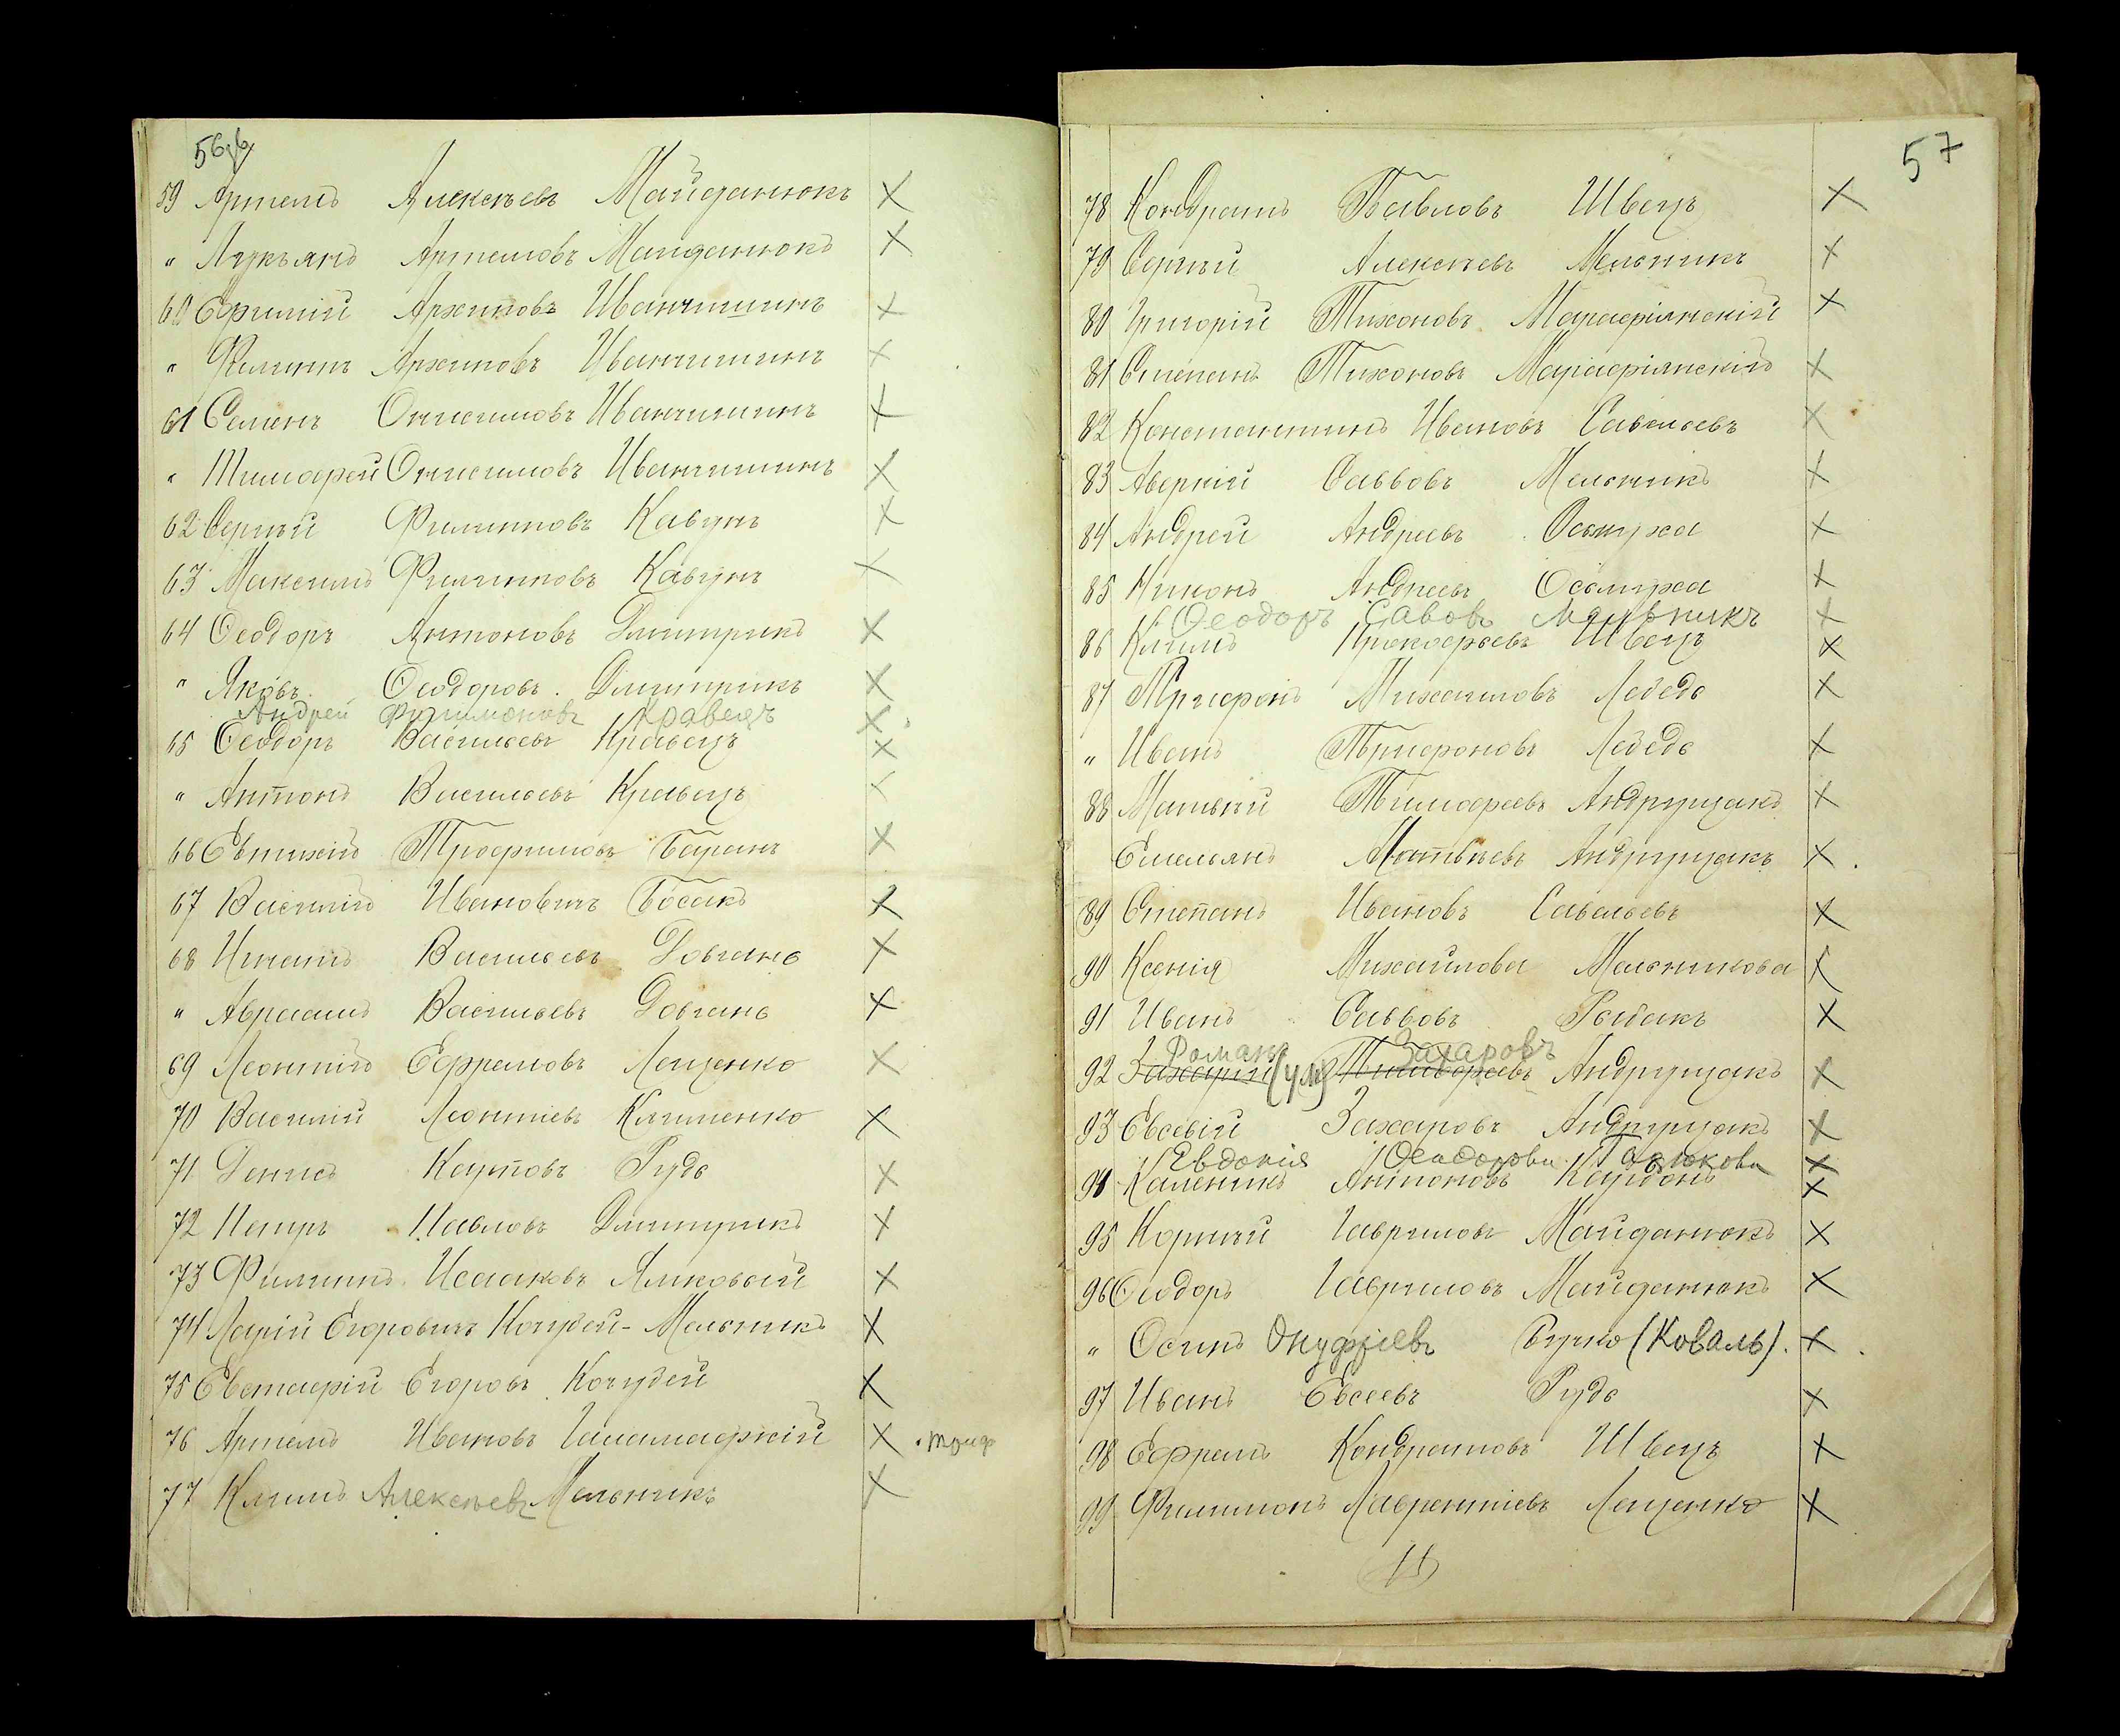 56
59 Артемъ Алексѣевъ Майданюкъ ×
" Лукьянъ Артемовъ Майданюкъ ×
60 Ефимій Архиповъ Иванчишинъ ×
" Филипъ Архиповъ Иванчишинъ ×
61 Семенъ Онисимовъ Иванчишинъ ×
" Тимофей Онисимовъ Иванчишинъ ×
62 Сергѣй Филиповъ Кавунъ ×
63 Максимъ Филиповъ Кавунъ ×
64 Ѳеодоръ Антоновъ Дмитрикъ ×
" Яковъ Ѳеодоровъ Дмитрикъ ×
Андрей Филимоновъ Кравецъ ×
65 Ѳеодоръ Васильевъ Кравецъ ×
" Антонъ Васильевъ Кравецъ ×
66 Евтихій Трофимовъ Баранъ ×
67 Василій Ивановичъ Босакъ ×
68 Игнатъ Васильевъ Довгань ×
" Авраамъ Васильевъ Довгань ×
69 Леонтій Ефремовъ Лещенко ×
70 Василій Леонтіевъ Клименко ×
71 Денисъ Карповъ Рудь ×
72 Петръ Павловъ Дмитрикъ ×
73 Филипъ Исааковъ Ямковый ×
74 Ларій Егоровичъ Кочубей-Мельникъ ×
75 Евстафій Егоровъ Кочубей ×
76 Артемъ Ивановъ ×
77 Климъ Алексѣевъ Мельникъ ×
57
78 Кондратъ Павловъ Швецъ ×
79 Сергѣй Алексѣевъ Мельникъ ×
80 Григорій Тихоновъ Марафіянскій ×
81 Степанъ Тихоновъ Марафіянскій ×
82 Константинъ Ивановъ Савельевъ ×
83 Аверкій Саввовъ Мельникъ ×
84 Андрей Андреевъ ×
85 Никонъ Андреевъ ×
Ѳеодоръ Савовъ Мельникъ ×
86 Климъ Прокофьевъ Швецъ ×
87 Трифонъ Михайловъ Лебедь ×
" Иванъ Трифоновъ Лебедь ×
88 Матвѣй Тимофеевъ Андрущакъ ×
Емельянъ Матвѣевъ Андрущакъ ×
89 Степанъ Ивановъ Савельевъ ×
90 Ксенія Михайлова Мельникова ×
91 Иванъ Саввовъ ×
Романъ Захаровъ
92 Захарій (ум) Тимофеевъ Андрущакъ ×
93 Евсевій Захаровъ Андрущакъ ×
Евдокія Ѳеодорова ×
94 Каленикъ Антоновъ ×
95 Корнѣй Гавриловъ Майданюкъ ×
96 Ѳеодоръ Гавриловъ Майданюкъ ×
" Осипъ Онуфріевъ Бучко (Коваль). ×
97 Иванъ Евсеевъ Рудь ×
98 Ефремъ Кондратовъ Швецъ ×
99 Филимонъ Лаврентіевъ Лещенко ×